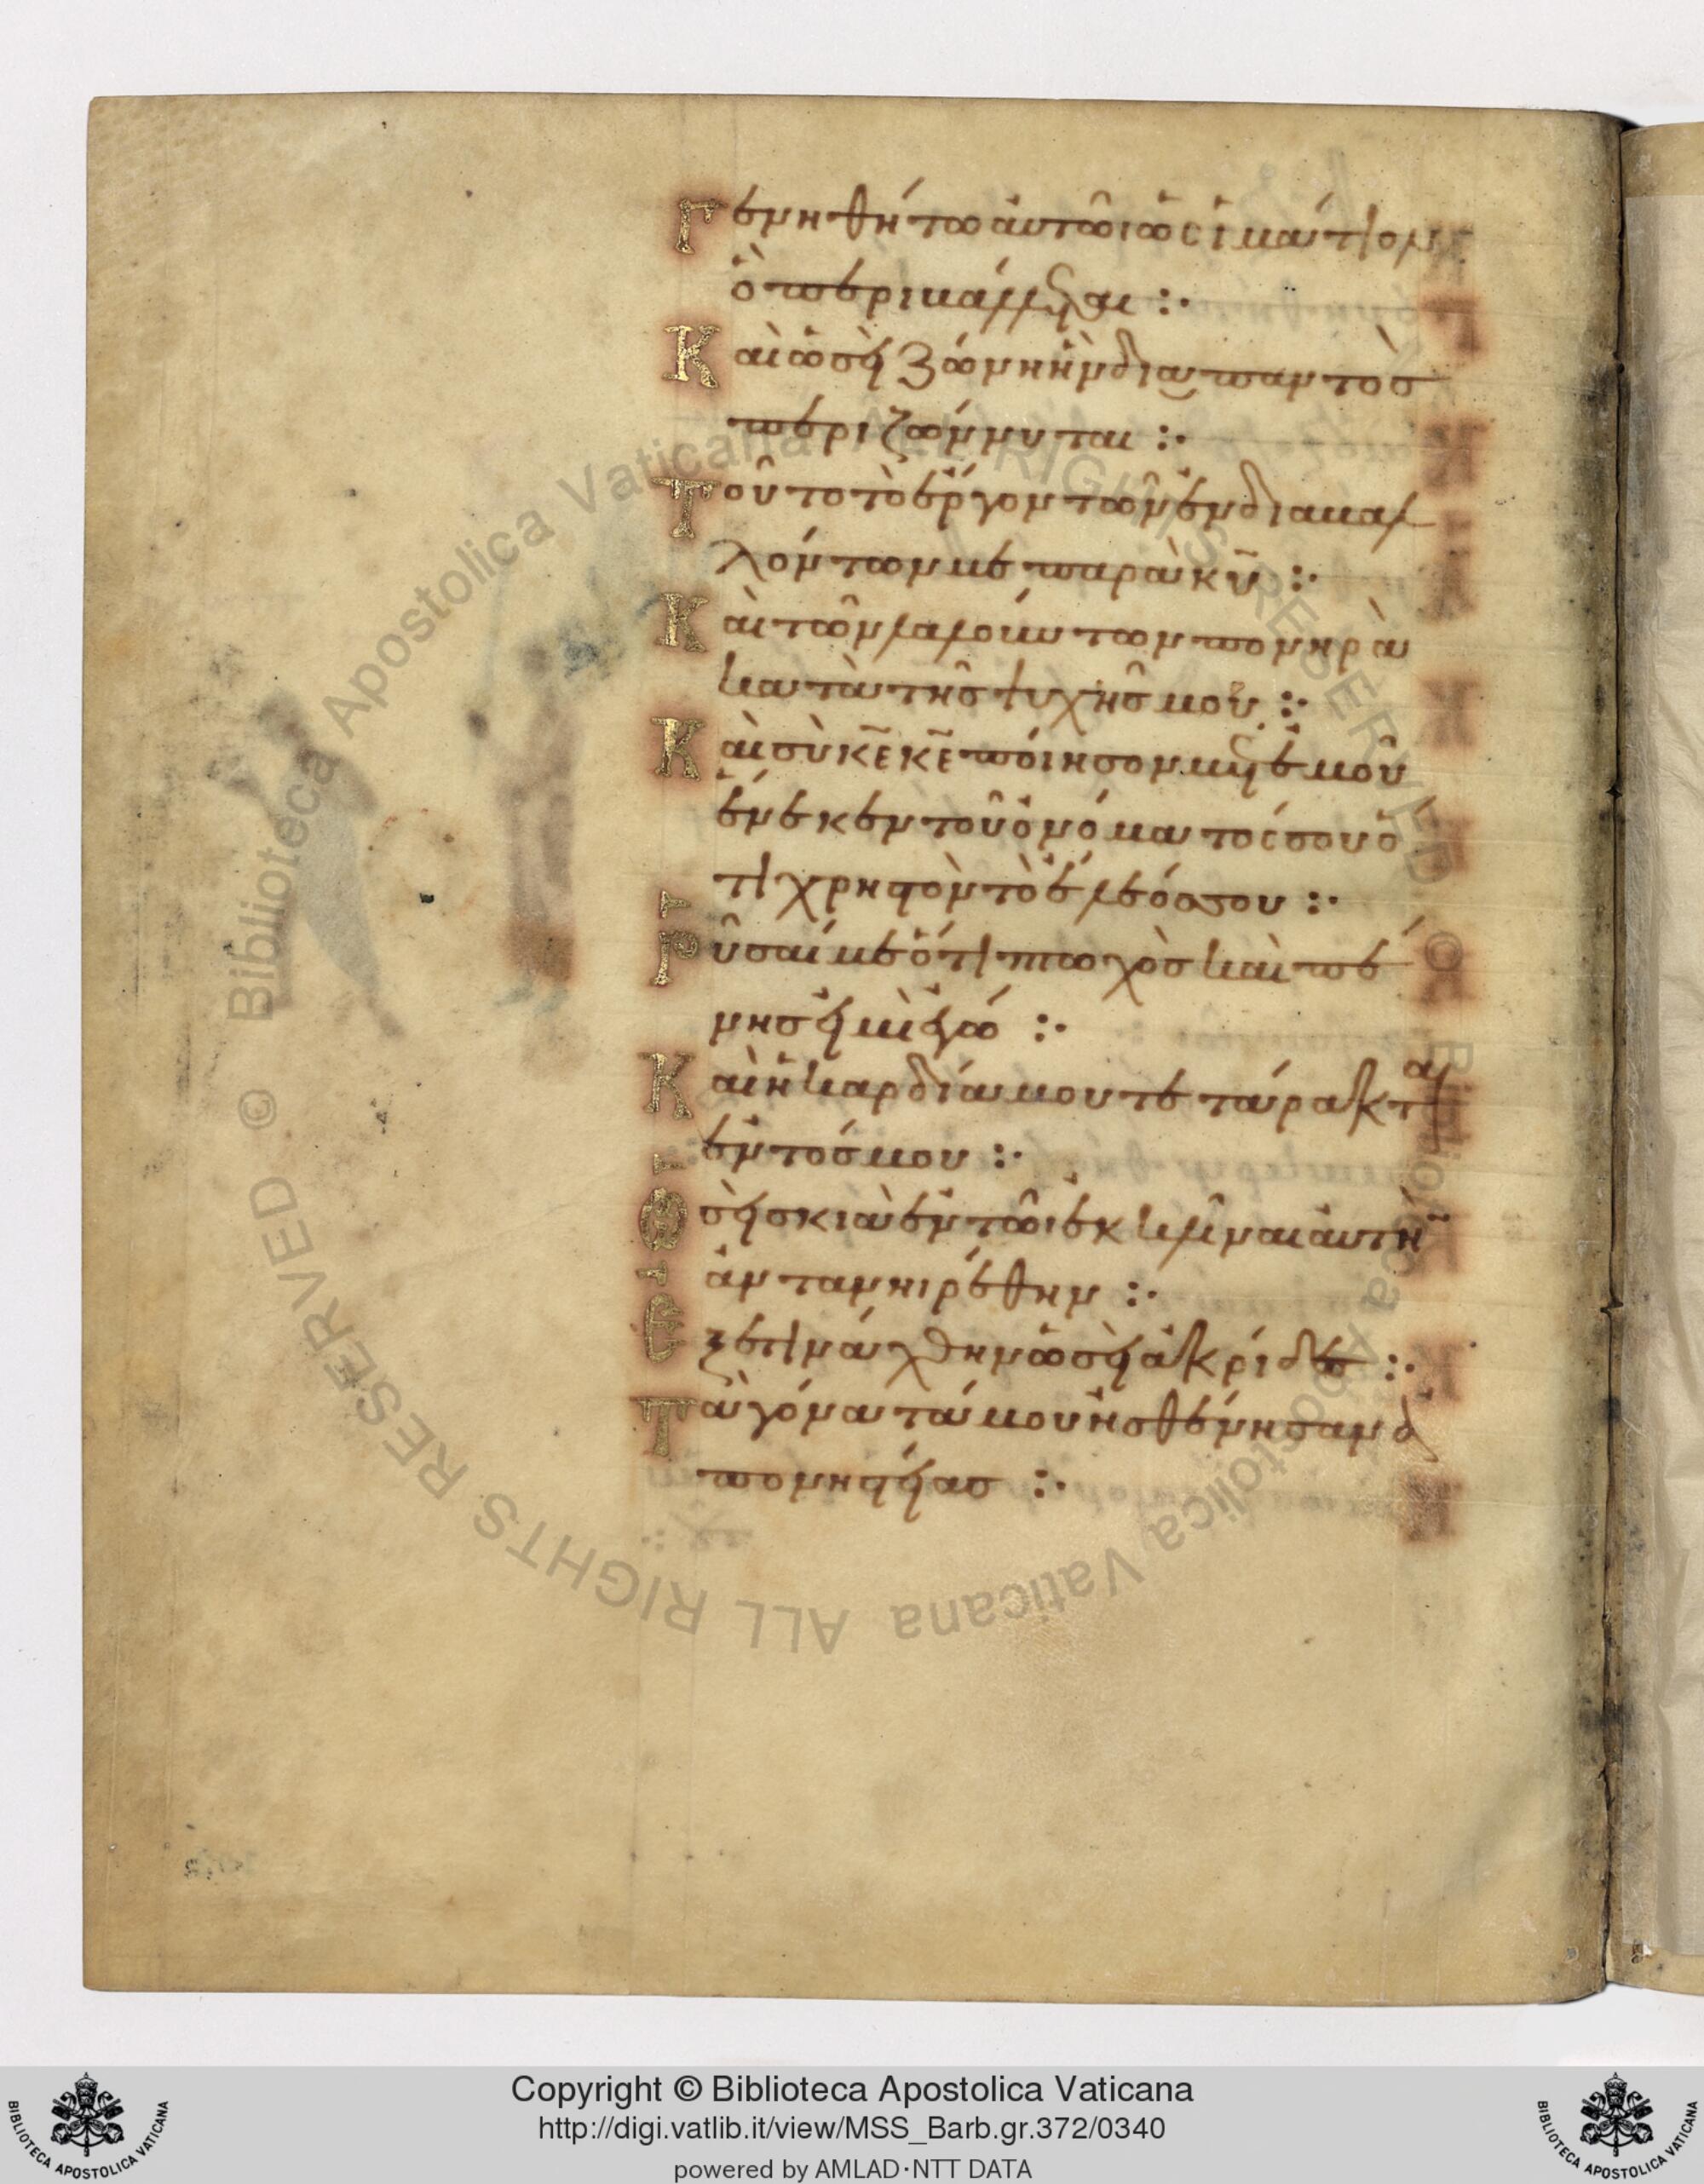 Γενηθήτω ἀυτῶι ὡς ἱμάτιον
ὃ περιβάλλεται :·
Καὶ ὡσεὶ ζώνη ἣν διαπαντὸσ
περιζώννυται :·
Τοῦτο τὸ ἔργον τῶν ἐνδιαβαλ
λόντων με παρὰ κ̄ῡ :·
Κὰι τῶν λαλούντων πονηρὰ
κατὰ τῆσ ψυχῆσ μου :·
Κὰι σὺ κ̄ε̄ κ̄ε̄ πόιησον μετ ἐμοῦ
ἕνεκεν τοῦ ὀνόματός σου ὅ
τι χρηστὸν τὸ ἔλεόσ σου :·
Ῥῦσαί με ὅτι πτωχὸσ καὶ πέ
νησ εἰμὶ ἐγώ :·
Καὶ ἡ καρδία μου τετάρακται
ἐντόσ μου :·
Ὡσεὶ σκιὰ ἐν τῶι ἐκκλῖναι ἀυτὴν
ἀντανηιρέθην :·
Ἐξετινάχθην ὡσεὶ ἀκρίδεσ :·
Τὰ γόνατά μου ἠσθένησαν ἀ
πο νηστείασ :·
Copyright © Biblioteca Apostolica Vaticana
http://digi.vatlib.it/view/MSS_Barb.gr.372/0340
powered by AMLAD·NTT DATA
BIBLIOTECA APOSTOLICA VATICANA
BIBLIOTECA APOSTOLICA VATICANA
© Biblioteca Apostolica Vaticana ALL RIGHTS RESERVED © Biblioteca Apostolica Vaticana ALL RIGHTS RESERVED